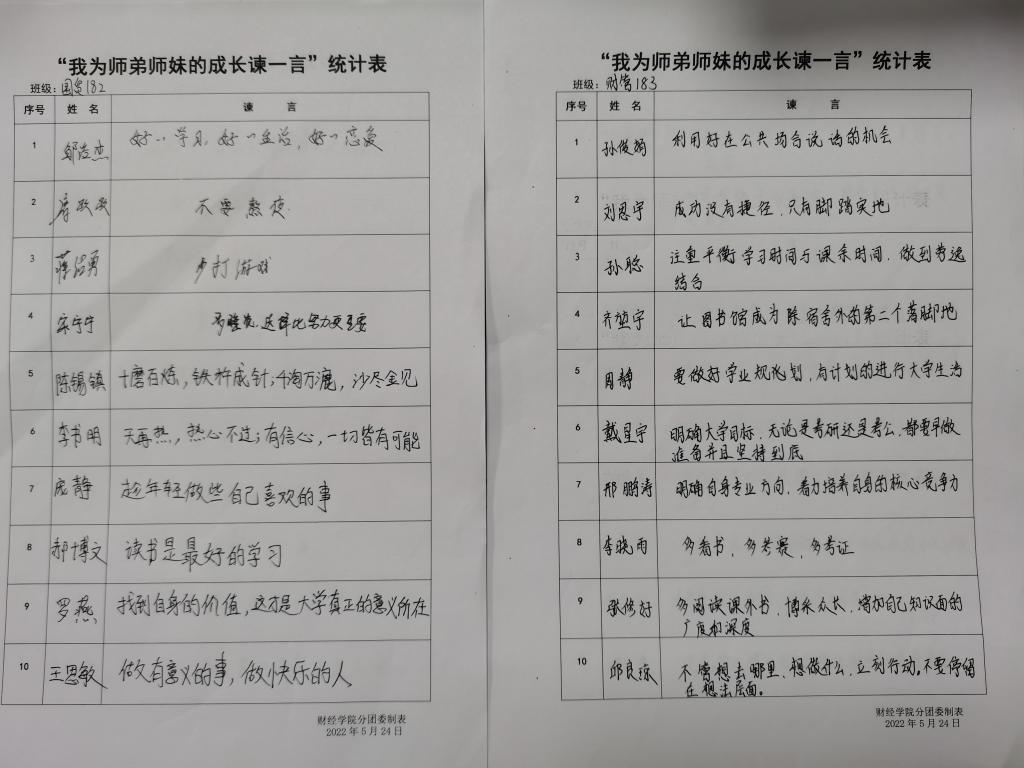 “我为师弟师妹的成长谏一言”统计表
班级：国贸182
序号 姓 名 谏 言
1 邹 杰 好好学习，好好生活，好好恋爱
2 不要熬夜.
3 蒋 勇 少打游戏
4 宋宁宁 多睡觉，这样比努力更重要
5 陈锡镇 千磨百炼，铁杵成针；千淘万漉，沙尽金见
6 李书明 天再热，热心不过；有信心，一切皆有可能
7 庞静 趁年轻做些自己喜欢的事
8 郝博文 读书是最好的学习
9 罗燕 找到自身的价值，这才是大学真正的意义所在
10 王思敏 做有意义的事，做快乐的人
财经学院分团委制表
2022年5月24日
“我为师弟师妹的成长谏一言”统计表
班级：财管183
序号 姓 名 谏 言
1 孙俊 利用好在公共场合说话的机会
2 刘恩宇 成功没有捷径，只有脚踏实地
3 孙聪 注重平衡学习时间与课余时间．做到劳逸
结合
4 齐 宇 让图书馆成为除宿舍外的第二个落脚地
5 周静 要做好学业规划，有计划的进行大学生活
6 戴星宇 明确大学目标，无论是考研还是考公，都要早做
准备并且坚持到底
7 邢鹏涛 明确自身专业方向，着力培养自身的核心竞争力
8 李晓雨 多看书，多考赛，多考证
9 张修好 多阅读课外书，博采众长，增加自己知识面的
广度和深度
10 邱良琼 不管想去哪里，想做什么，立刻行动。不要停留
在想法层面。
财经学院分团委制表
2022年5月24日